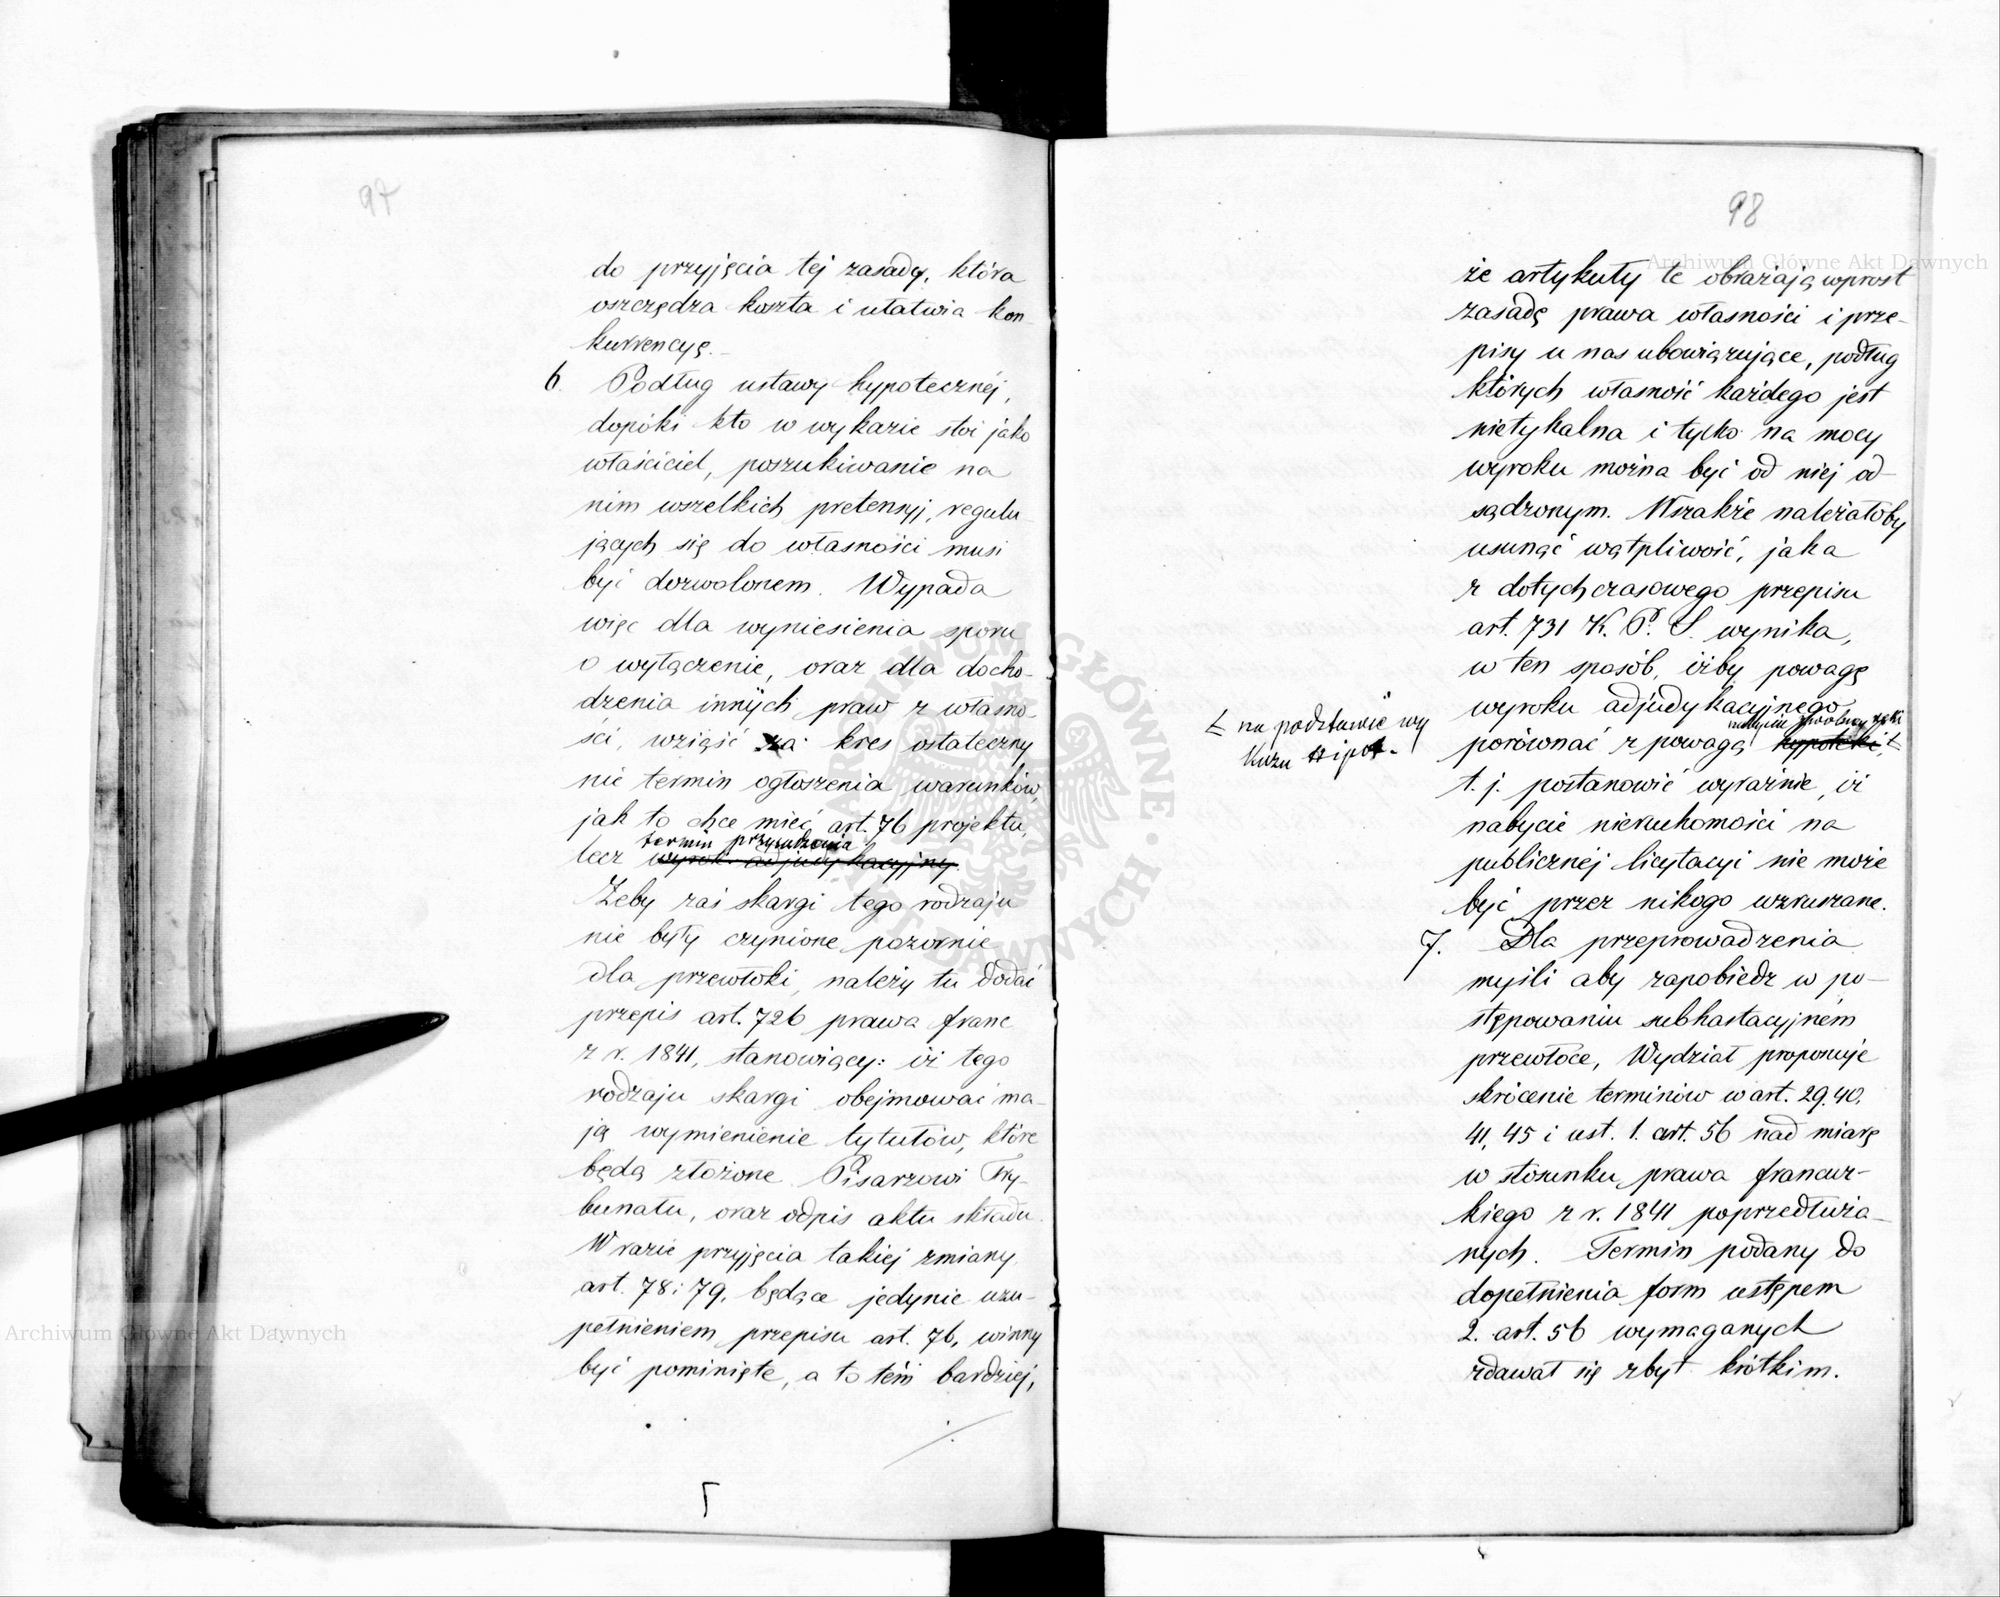 97
do przyjęcia tej zasady, która
oszczędza koszta i ułatwia kon-
kurrencyę.
6. Podług ustawy hypotecznéj,
dopóki kto w wykazie stoi jako
właściciel, poszukiwanie na
nim wszelkich pretensyj, regulu-
jących się do własności musi
być dozwolonem. Wypada
więc dla wyniesienia sporu
o wyłączenie, oraz dla docho-
dzenia innych praw z własno-
ści, wziąść za kres ostateczny
nie termin ogłoszenia warunków,
jak to chce mieć art. 76 projektu,
termin przysądzenia
lecz wyrok adjudykacyjny.
Żeby zaś skargi tego rodzaju
nie były czynione pozornie
dla przewłoki, należy tu dodać
przepis art. 726 prawa franc
z r. 1841, stanowiący: iż tego
rodzaju skargi obejmować ma-
ją wymienienie tytułów, które
będą złożone Pisarzowi Try-
bunału, oraz odpis aktu składu.
W razie przyjęcia takiej zmiany
art. 78 i 79, będące jedynie uzu-
pełnieniem przepisu art. 76, winny
być pominięte, a to tém bardziej,
98
że artykuły te obrażają wprost
zasadę prawa własności i prze-
pisy u nas obowiązujące, podług
których własność każdego jest
nietykalna i tylko na mocy
wyroku można być od niej od-
sądzonym. Wszakże należałoby
usunąć wątpliwość, jaka
z dotychczasowego przepisu
art. 731 K. P. S. wynika,
w ten sposób, iżby powagę
wyroku adjudykacyjnego
nabycia z wolnej ręki
porównać z powagą hypoteki,
na podstawie wy
kazu Hipot.
t. j. postanowić wyraźnie, iż
nabycie nieruchomości na
publicznéj licytacyi nie może
być przez nikogo wzruszane.
7. Dla przeprowadzenia
myśli aby zapobiedz w po-
stępowaniu subhastacyjném
przewłoce, Wydział proponuje
skrócenie terminów w art. 29. 40,
41, 45 i ust. 1. art. 56 nad miarę
w stosunku prawa francuz-
kiego z r. 1841 poprzedłuża-
nych. Termin podany do
dopełnienia form ustępem
2. art. 56 wymaganych
zdawał się zbyt krótkim.
Archiwum Główne Akt Dawnych
Archiwum Główne Akt Dawnych
ARCHIWUM GŁÓWNE AKT DAWNYCH